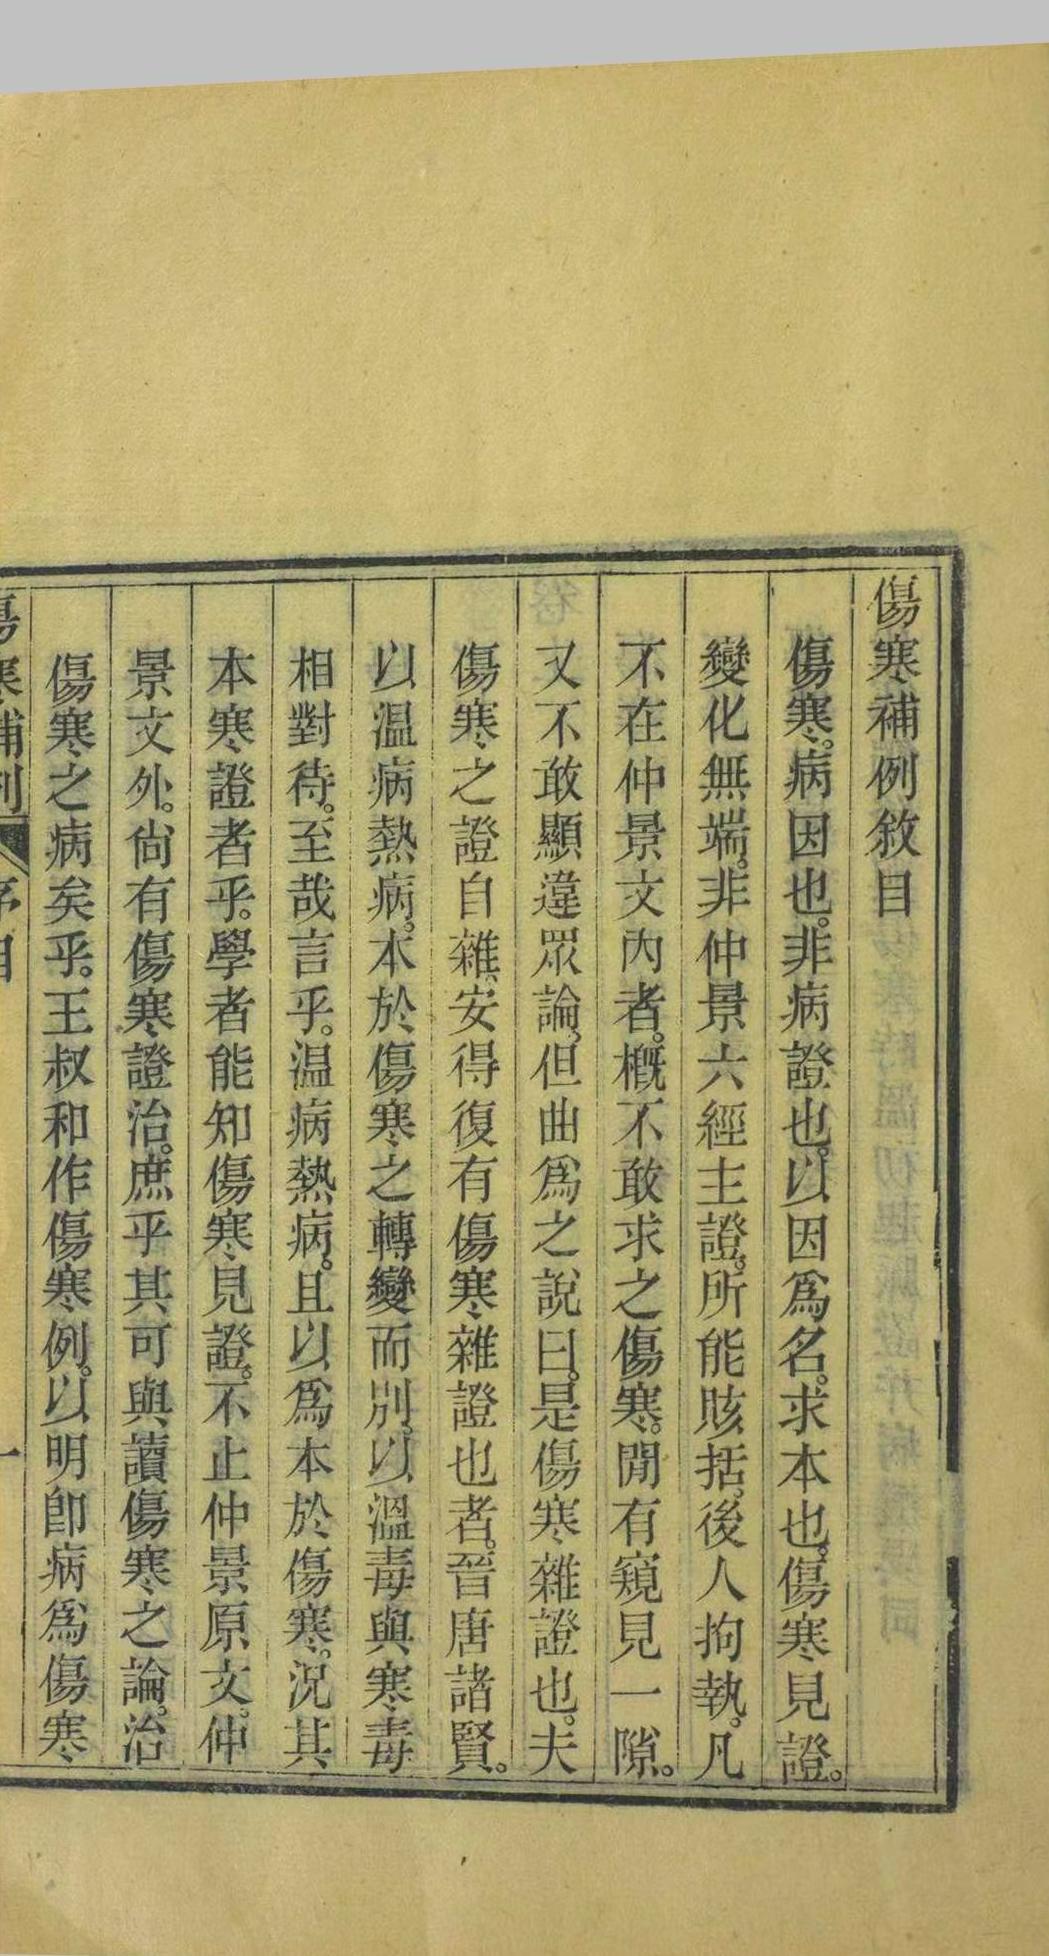 傷寒補例敘目
傷寒。病因也。非病證也。以因爲名。求本也。傷寒見證。
變化無端。非仲景六經主證。所能賅括。後人拘執。凡
不在仲景文內者。槪不敢求之傷寒。閒有窺見一隙。
又不敢顯違眾論、但曲爲之說曰。是傷寒雜證也。夫
傷寒之證自雜、安得復有傷寒雜證也者。晉唐諸賢。
以温病熱病。本於傷寒之轉變而別。以溫毒與寒毒
相對待。至哉言乎。温病熱病。且以爲本於傷寒。況其
本寒證者乎。學者能知傷寒見證。不止仲景原文。仲
景文外。尙有傷寒證治。庶乎其可與讀傷寒之論。治
傷寒之病矣乎。王叔和作傷寒例。以明卽病爲傷寒
傷寒補例 序目 一